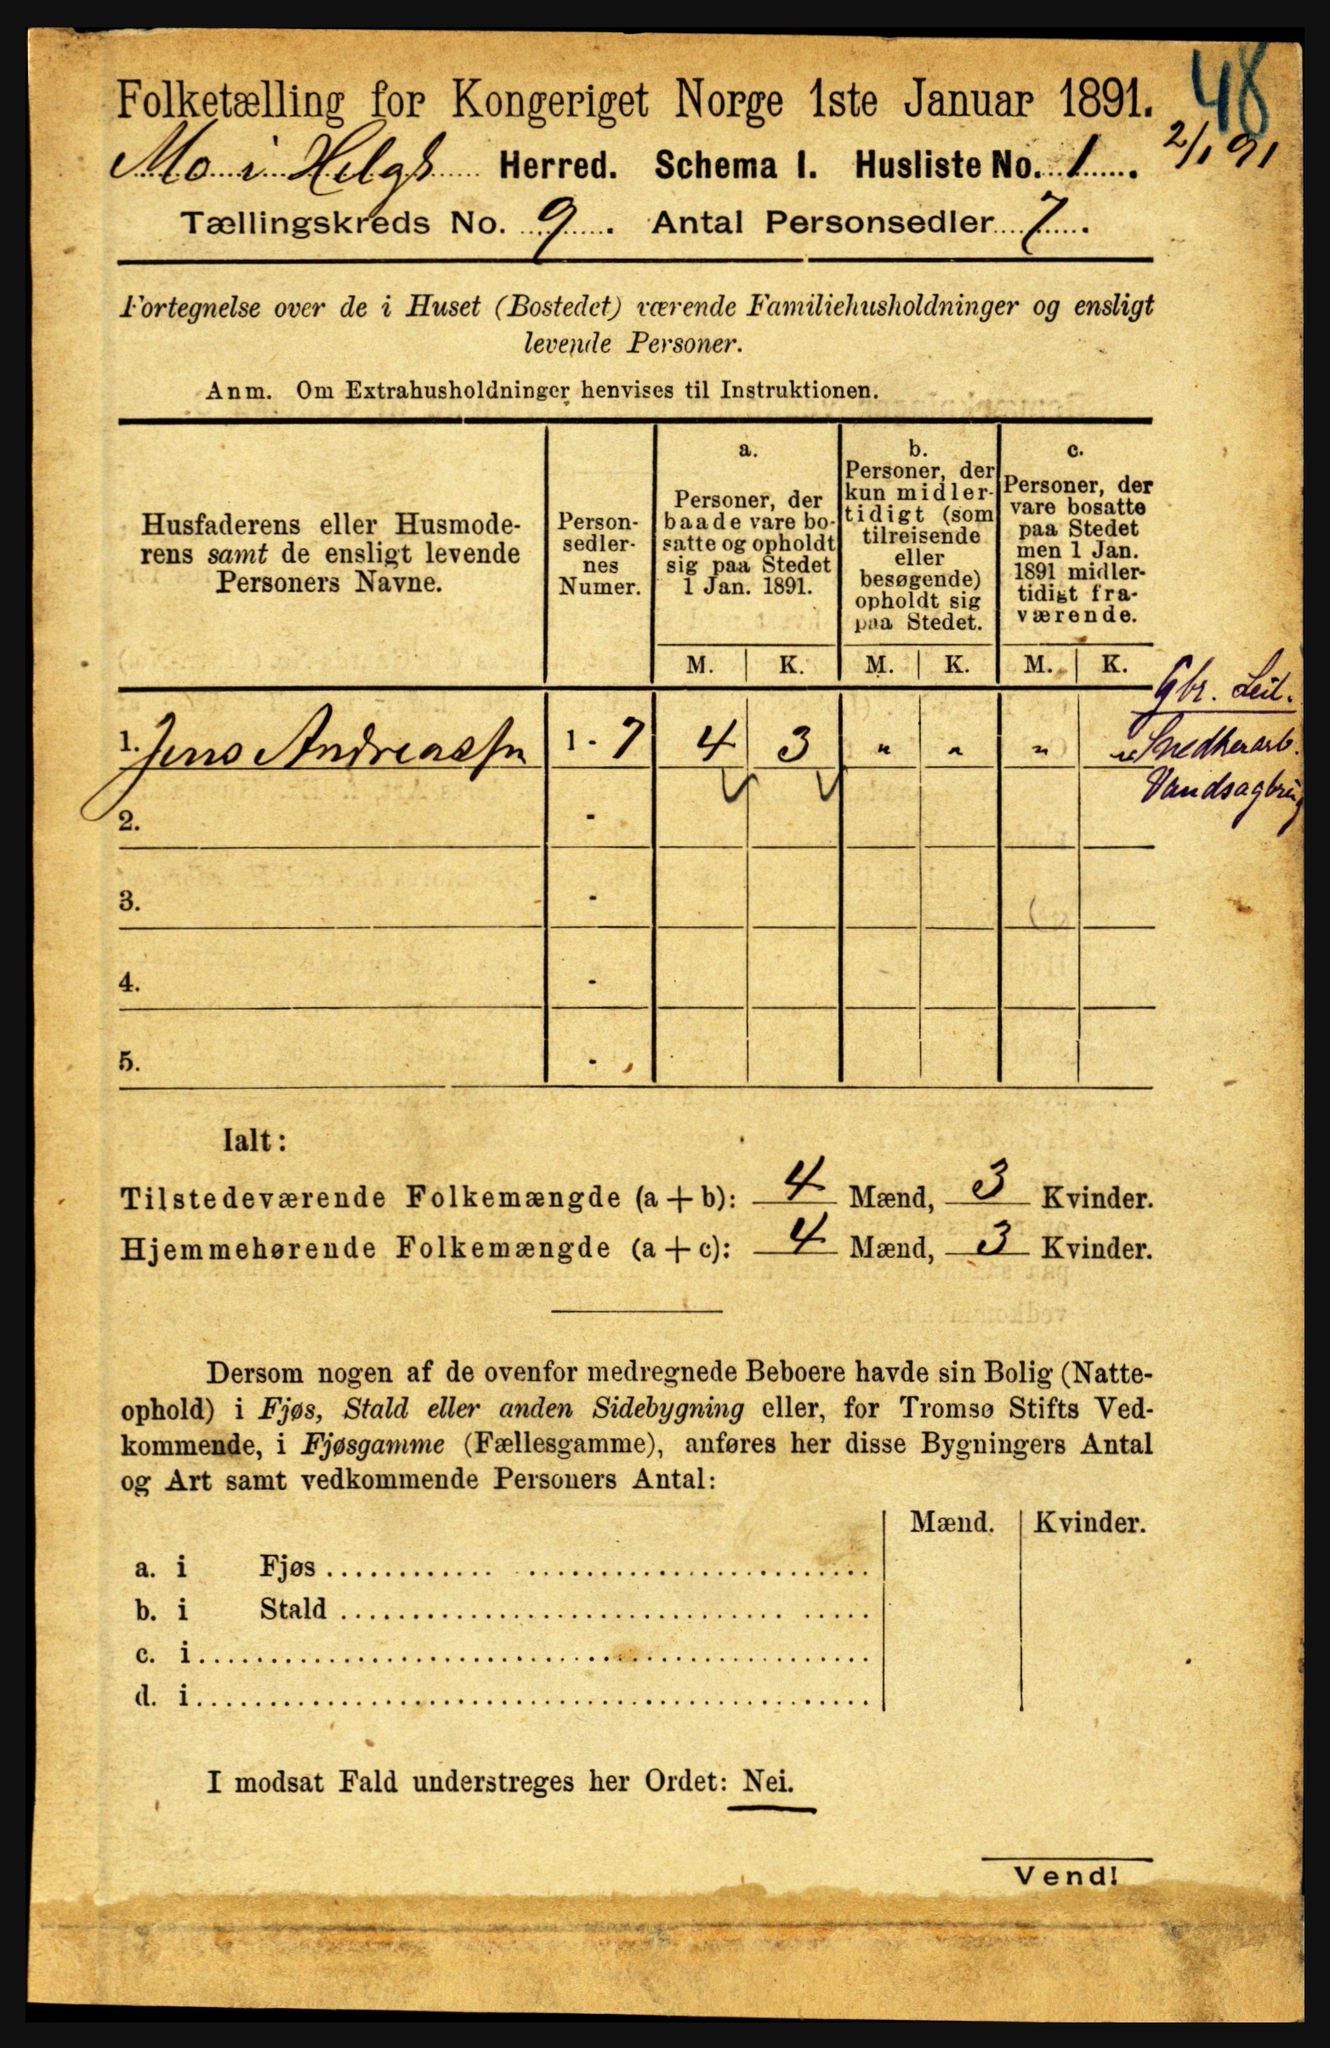 48
Folketælling for Kongeriget Norge 1ste Januar 1891.
2/1 91
Mo i Helgl Herred. Schema I. Husliste No. 1.
Tællingskreds No. 9. Antal Personsedler 7.
Fortegnelse over de i Huset (Bostedet) værende Familiehusholdninger og ensligt
levende Personer.
Anm. Om Extrahusholdninger henvises til Instruktionen.
Husfaderens eller Husmode-
rens samt de ensligt levende
Personers Navne.
Person-
sedler-
nes
Numer.
a.
Personer, der
baade vare bo-
satte og opholdt
sig paa Stedet
1 Jan. 1891.
b.
Personer, der
kun midler-
tidigt (som
tilreisende
eller
besøgende)
opholdt sig
paa Stedet.
c.
Personer, der
vare bosatte
paa Stedet
men 1 Jan.
1891 midler-
tidigt fra-
værende.
M. K. M. K. M. K.
Gbr. Leil.
1. Jens Andreassn 1 - 7 4 3 " " " "
Snedkerarb.
Vandsagbrug
2. -
3. -
4. -
5. -
Ialt:
Tilstedeværende Folkemængde (a + b): 4 Mænd, 3 Kvinder.
Hjemmehørende Folkemængde (a + c): 4 Mænd, 3 Kvinder.
Dersom nogen af de ovenfor medregnede Beboere havde sin Bolig (Natte-
ophold) i Fjøs, Stald eller anden Sidebygning eller, for Tromsø Stifts Ved-
kommende, i Fjøsgamme (Fællesgamme), anføres her disse Bygningers Antal
og Art samt vedkommende Personers Antal:
Mænd. Kvinder.
a. i Fjøs
b. i Stald
c. i
d. i
I modsat Fald understreges her Ordet: Nei.
Vend!